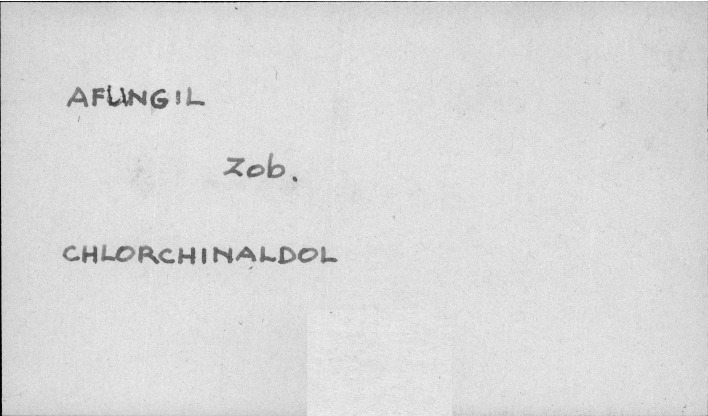 AFUNGIL
Zob.
CHLORCHINALDOL